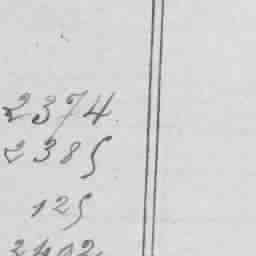 2374
2385
125
2402